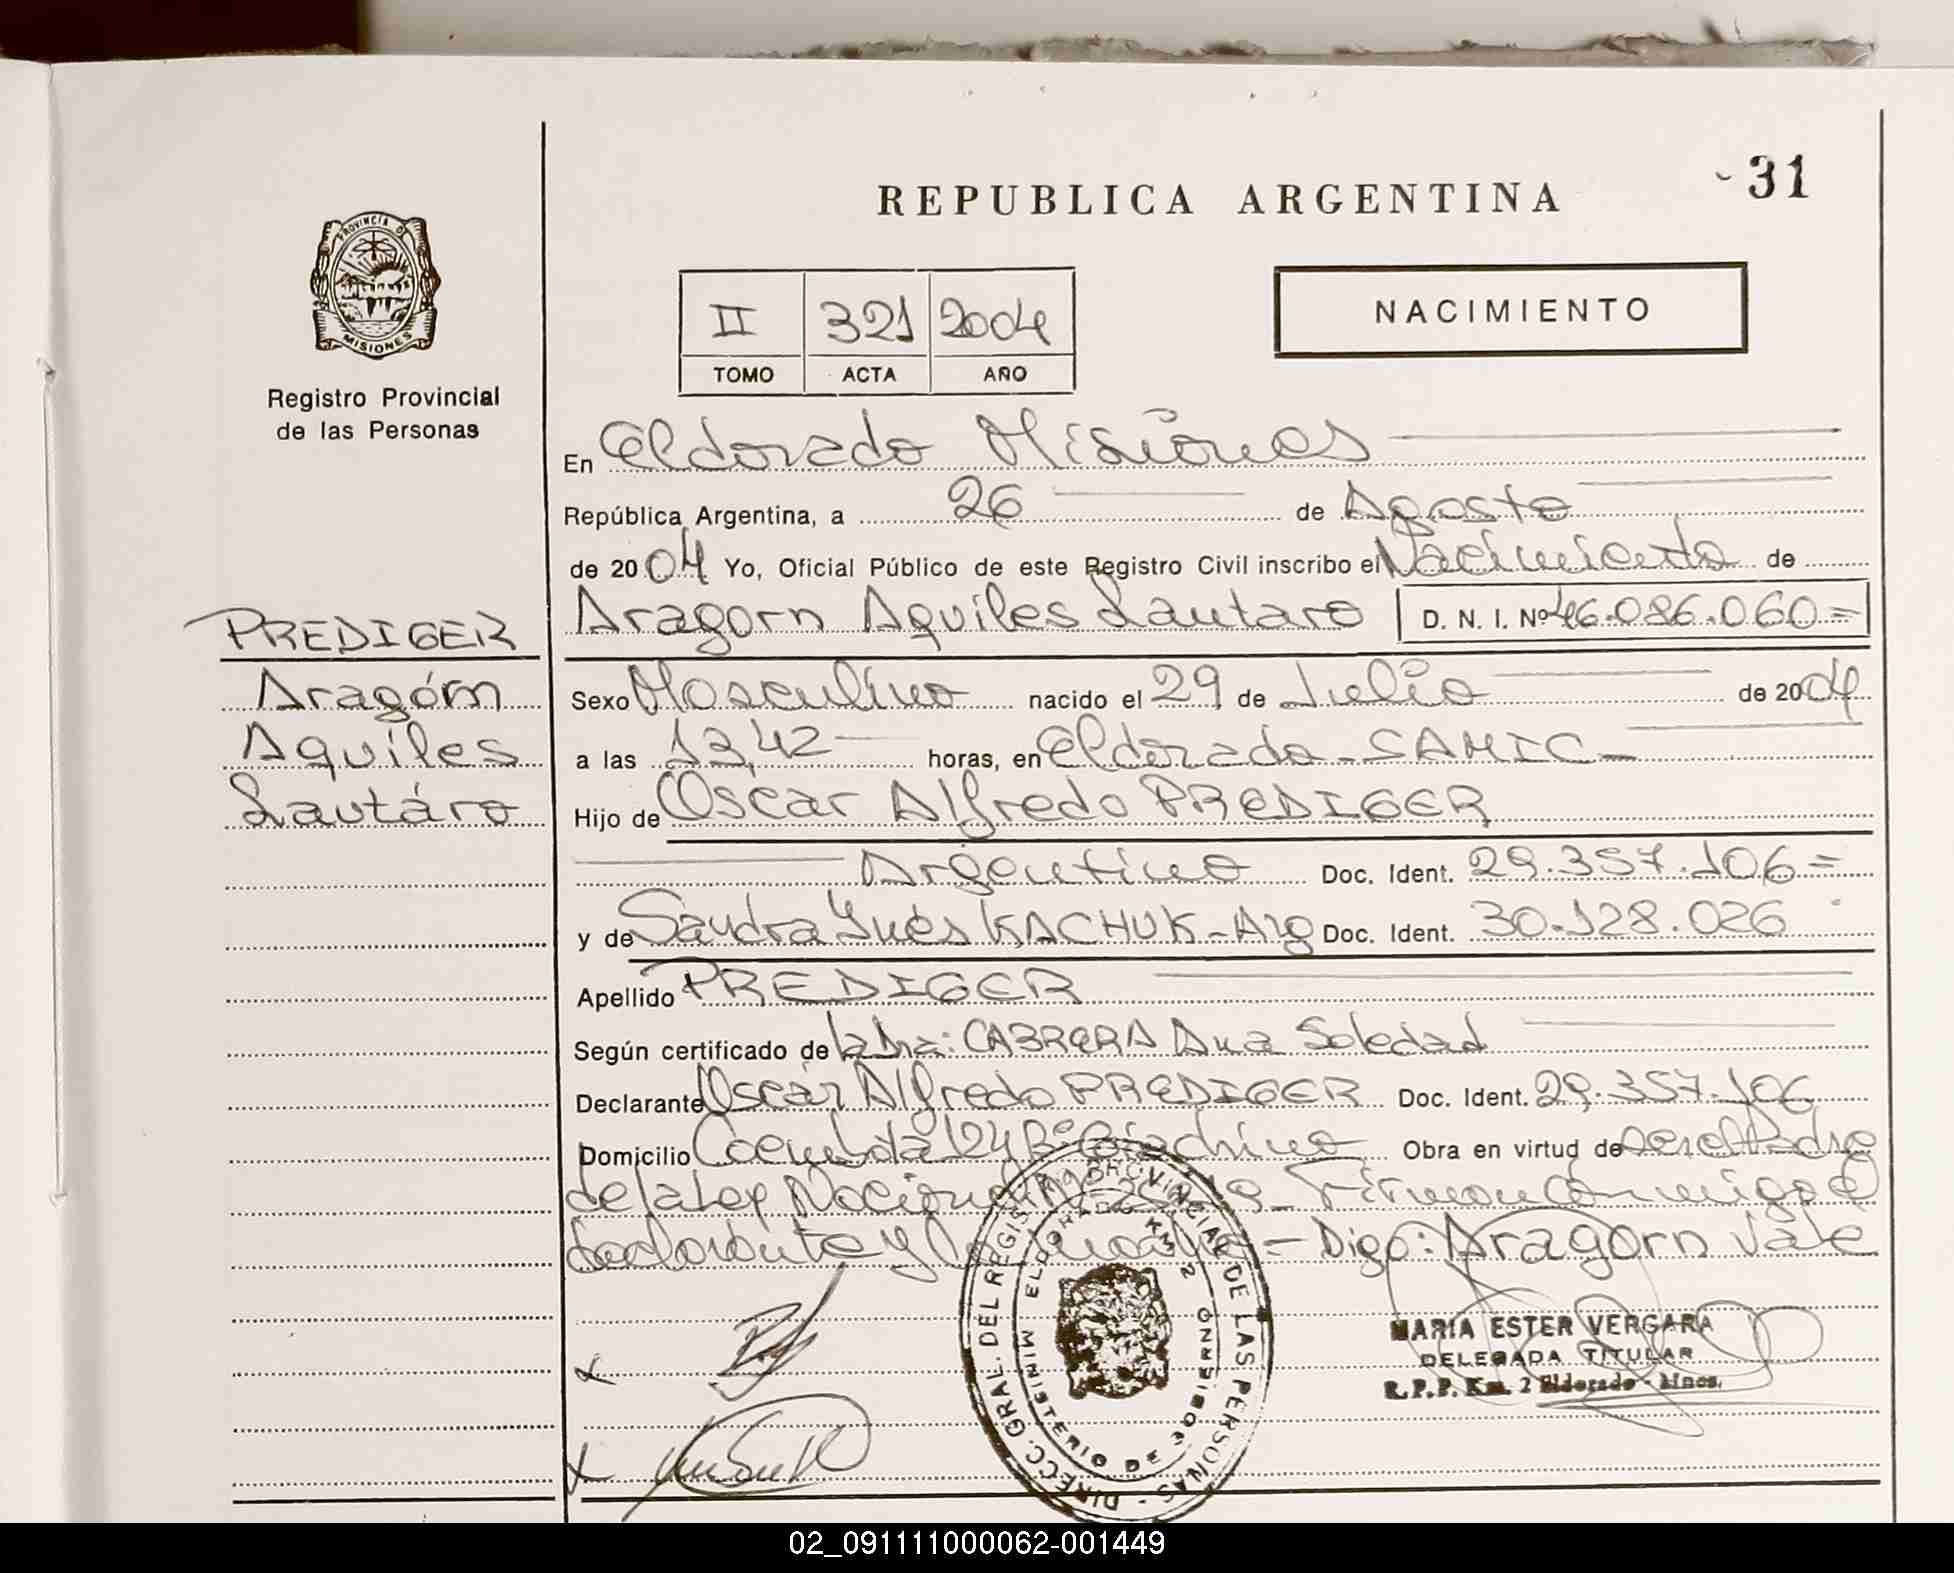 REPUBLICA ARGENTINA
31
PROVINCIA DE
MISIONES
Registro Provincial
de las Personas
II 321 2004
TOMO ACTA AÑO
NACIMIENTO
En Eldorado Misiones
República Argentina, a 26 de Agosto
de 2004 Yo, Oficial Público de este Registro Civil inscribo el Nacimiento de
Aragorn Aquiles Lautaro D. N. I. Nº 46.086.060=
PREDIGER
Aragórn
Aquiles
Lautáro
Sexo Masculino nacido el 29 de Julio de 2004
a las 13,42 horas, en Eldorado-SAMIC-
Hijo de Oscar Alfredo PREDIGER
Argentino Doc. Ident. 29.357.106=
y de Sandra Ynés KACHUK-Arg Doc. Ident. 30.128.026
Apellido PREDIGER
Según certificado de la Dra: CABRERA Ana Soledad
Declarante Oscar Alfredo PREDIGER Doc. Ident. 29.357.106
Domicilio 124 Bº Obra en virtud de ser el Padre
de la Ley Nacional Firman conmigo el
declarante y la = Digo: Aragorn Vale
MARIA ESTER VERGARA
DELEGADA TITULAR
R.P.P. Km. 2 Eldorado - Mnes.
DIRECC. GRAL. DEL REGISTRO PROVINCIAL DE LAS PERSONAS -
MINISTERIO DE GOBIERNO
ELDORADO KM 2
02_091111000062-001449